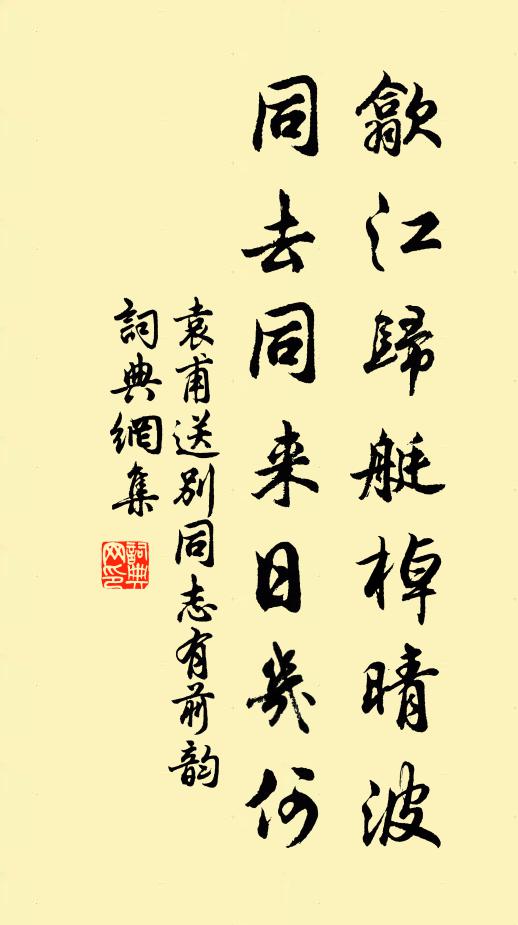 歙江歸艇棹晴波
同去同来日幾何
袁甫送別同志有前韵
詞典網集
詞典网印